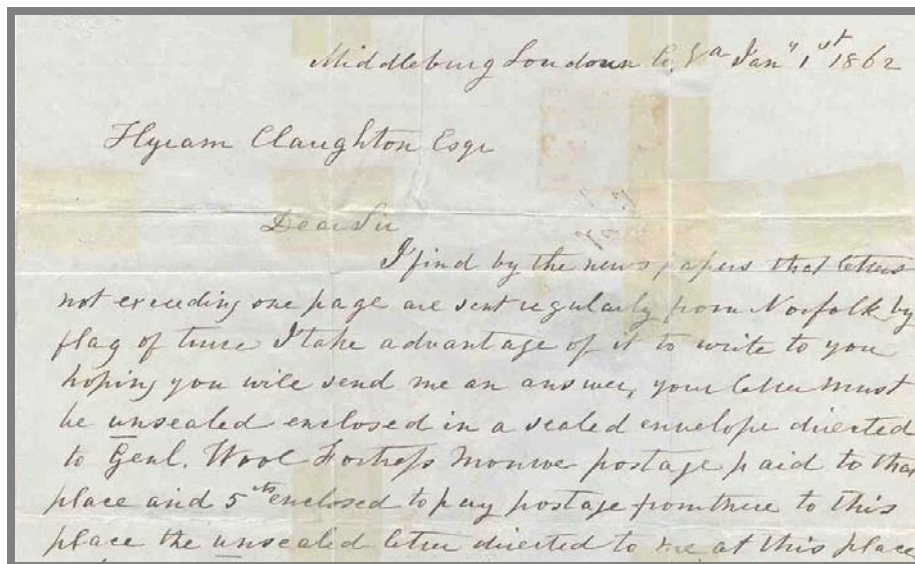 Middleburg Loudoun Co, Va Jany 1st 1862
Hyram Claughton Esqr
Dear Sir
I find by the news papers that letters
not exceeding one page are sent regularly from Norfolk by
flag of truce I take advantage of it to write to you
hoping you will send me an answer, your letter must
be unsealed enclosed in a sealed envelope directed
to Genl. Wool Fortress Monroe postage paid to that
place and 5cts enclosed to pay postage from there to this
place the unsealed letter directed to me at this place